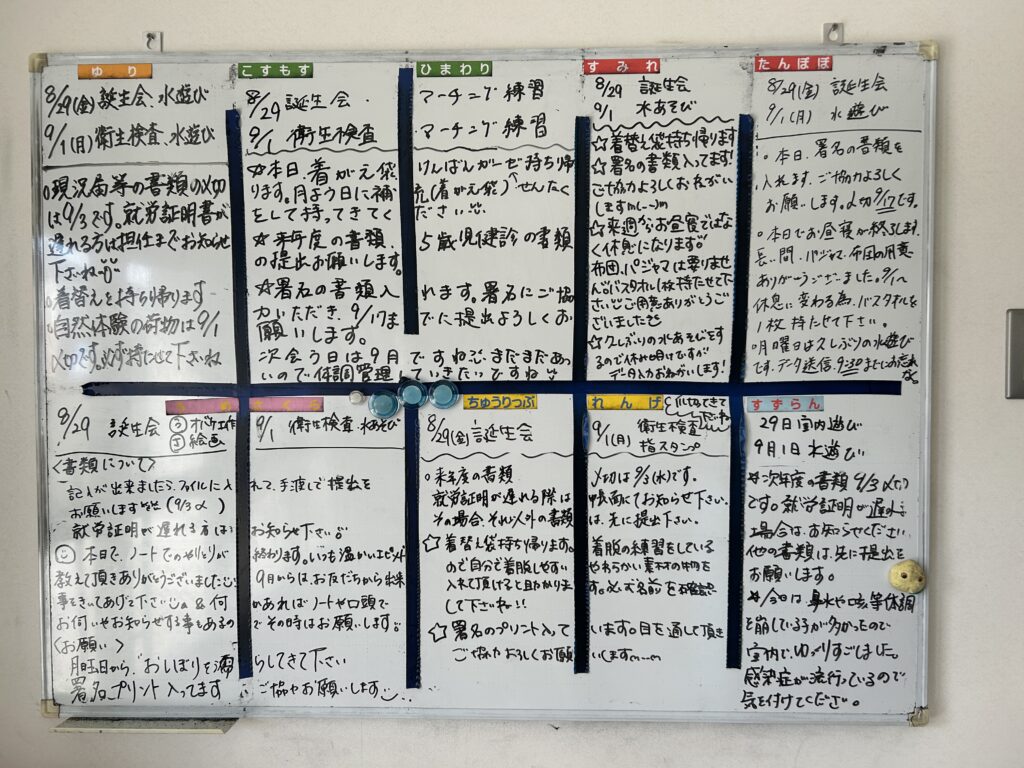 ゆり
8/29(金)誕生会、水遊び
9/1(月)衛生検査、水遊び
○現況届等の書類の〆切
は9/3です。就労証明書が
遅れる方は担任までお知らせ
下さいね
○着替えを持ち帰ります
○自然体験の荷物は9/1
〆切です。必ず持たせて下さいね
こすもす
8/29 誕生会、
9/1 衛生検査
☆本日、着がえ袋
ります。月よう日に補
をして持ってきてく
☆来年度の書類、
の提出お願いします。
☆署名の書類入
力いただき、9/17ま
願いします。
次会う日は9月
いので体調管理
ひまわり
マーチング練習
マーチング練習
けんばんガーゼ持ち帰
充(着がえ袋) せんたく
ださい
5歳児健診の書類
れます。署名にご協
でに提出よろしくお
ですね まだまだあつ
していきたいですね
すみれ
8/29 誕生会
9/1 水あそび
☆着替え袋持ち帰ります
☆署名の書類入ってます!
ご協力よろしくおねがい
しますm(__)m
☆来週からお昼寝ではな
く休息になります。
布団、パジャマは要りませ
ん。バスタオル1枚持たせて下
さい ご用意ありがとうご
ざいました
☆久しぶりの水あそびをす
るので休み明けですが
データ入力おねがいします!
たんぽぽ
8/29(金) 誕生会
9/1(月) 水遊び
○本日、署名の書類を
入れます。ご協力よろしく
お願いします。〆切9/17です。
○本日でお昼寝が終了します。
長い間、パジャマ・布団の用意
ありがとうございました。9/1〜
休息に変わる為、バスタオルを
1枚持たせて下さい。
○月曜日は久しぶりの水遊び
です。データ送信、9:30までにお忘れ
なく
8/29 誕生会
オバケ工作
絵画
〈書類について〉
記入が出来ましたら、ファイルに入
お願いします (9/3〆)
就労証明が遅れる方は
本日で、ノートでのやりとりが
教えて頂きありがとうございました
事をきいてあげて下さい & 何
お伺いやお知らせする事もあるの
〈お願い〉
月曜日から、おしぼりを濡
署名プリント入ってます
さくら
9/1 衛生検査、水あそび
れて、手渡しで提出を
お知らせ下さい。
終わります。いつも温かいエピソード
9月からは、お友だちから出来
かあればノートや口頭で
でその時はお願いします
らしてきて下さい
ご協力お願いします
ちゅうりっぷ
8/29(金) 誕生会
○来年度の書類
就労証明が遅れる際は
その場合、それ以外の書類
☆着替え袋持ち帰ります。
ので自分で着脱しやすい
入れて頂けると助かりま
して下さいね!!
☆署名のプリント入って
ご協力よろしくお願
れんげ
爪切できて
9/1(月) 衛生検査
指スタンプ
〆切は9/3(水)です。
申し出てお知らせ下さい。
は、先に提出下さい。
着脱の練習をしている
やわらかい素材の物を
す。必ず名前を確認
います。目を通して頂き
いしますm(__)m
すずらん
29日室内遊び
9月1日水遊び
＊次年度の書類 9/3〆切
です。就労証明が遅れる
場合は、お知らせください
他の書類は、先に提出を
お願いします。
＊今日は鼻水や咳等体調
を崩している子が多かったので
室内でゆっくりすごしました。
感染症が流行っているので
気を付けてください。